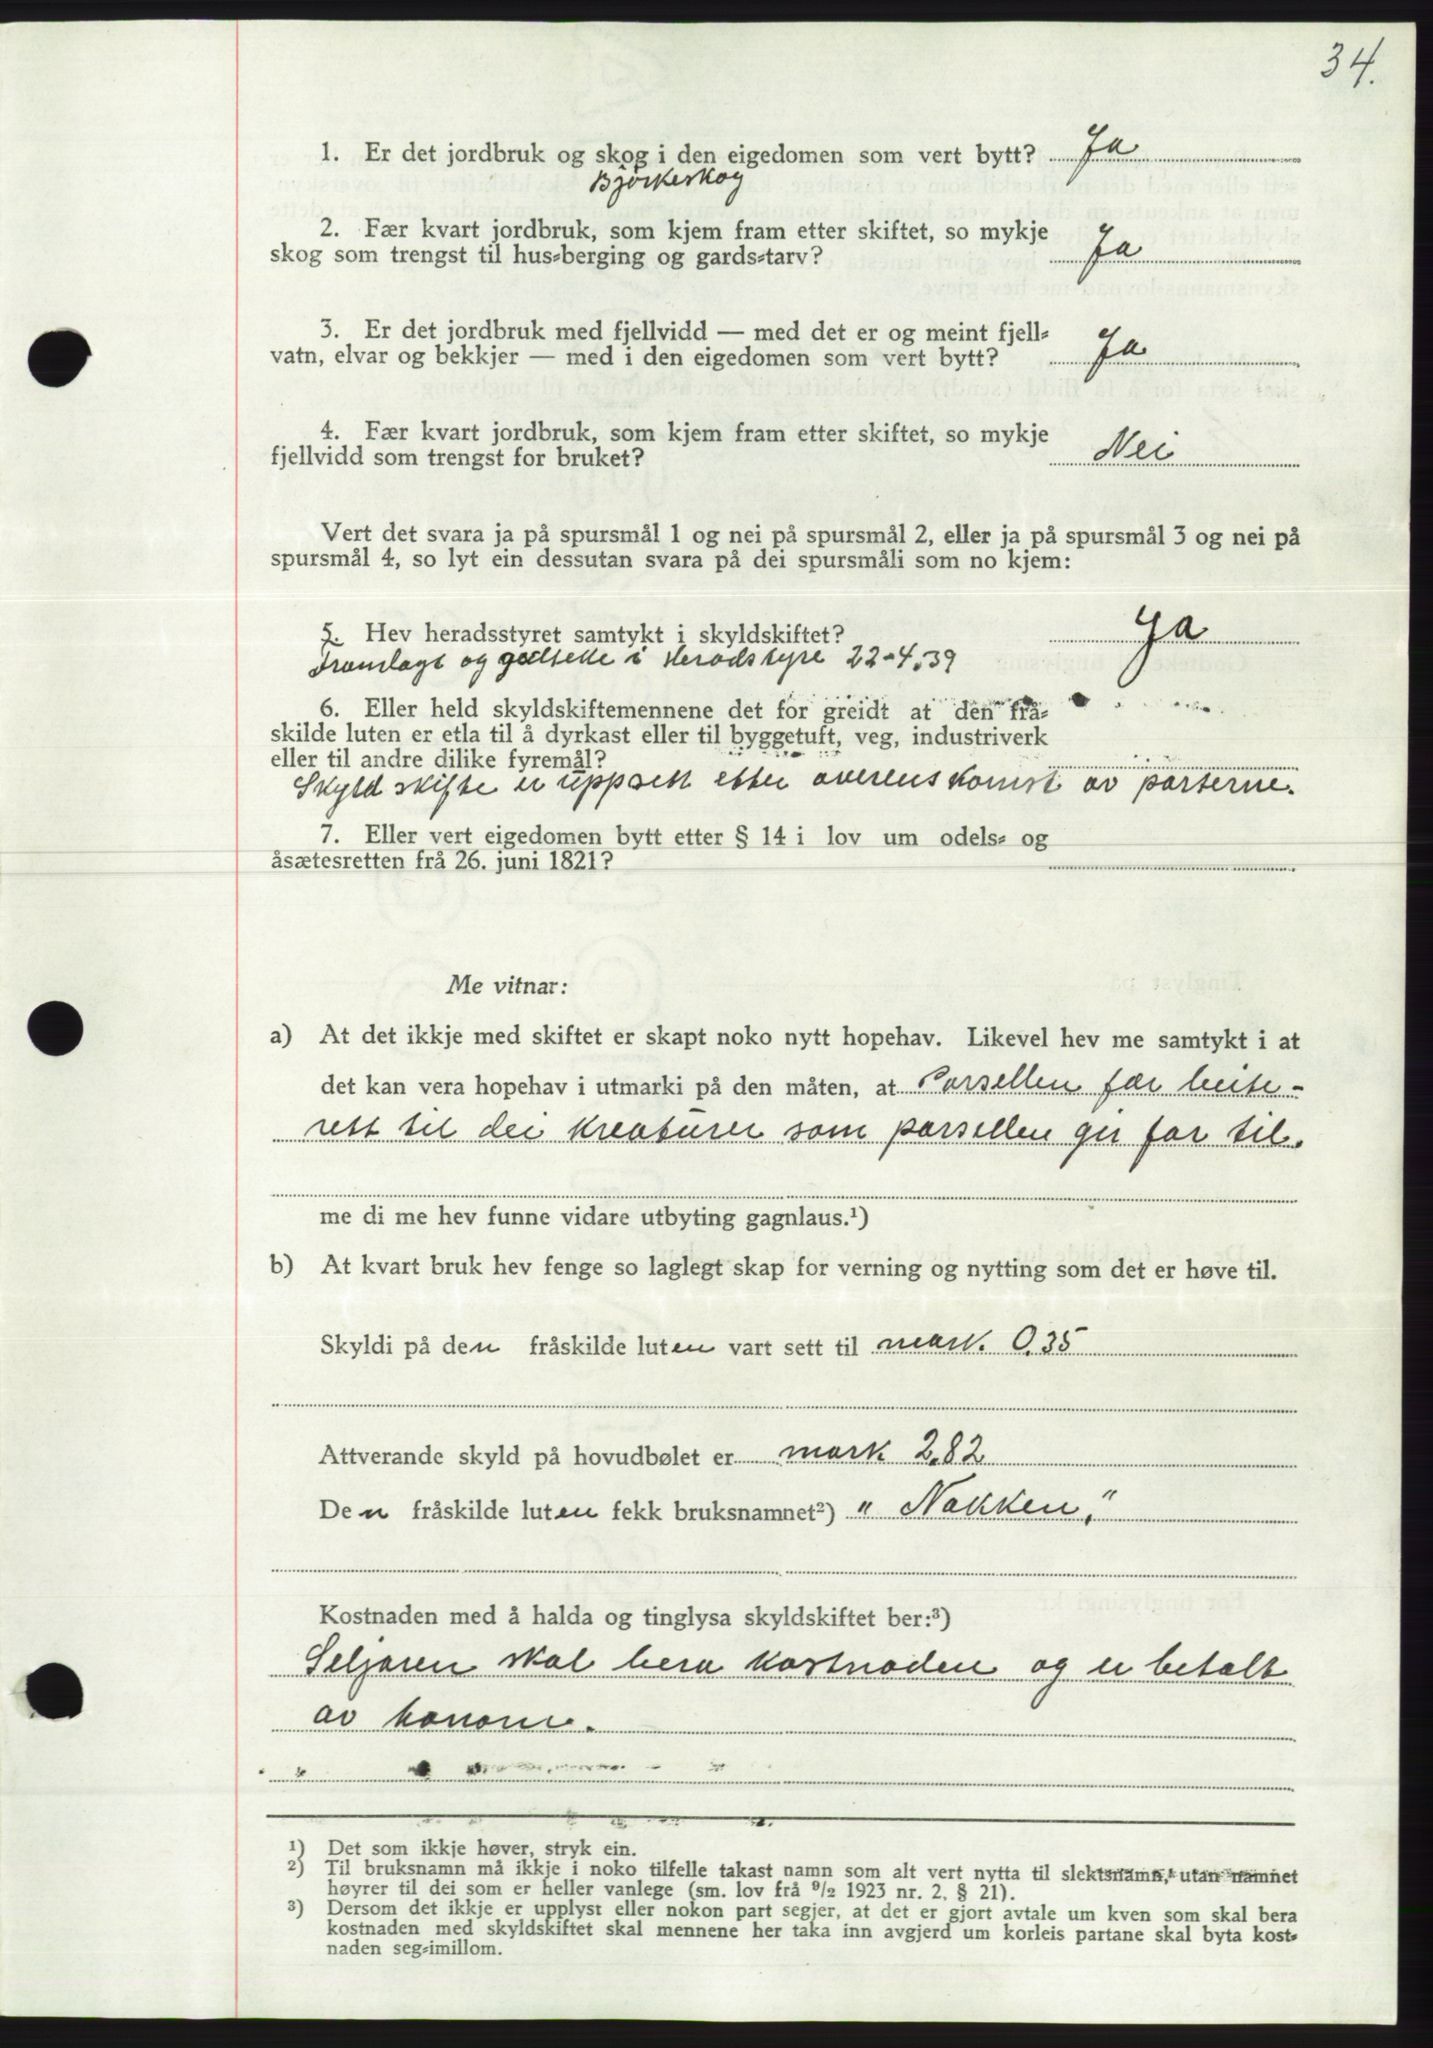 34.
1. Er det jordbruk og skog i den eigedomen som vert bytt? Ja
Björkeskog
2. Fær kvart jordbruk, som kjem fram etter skiftet, so mykje
skog som trengst til hus-berging og gards-tarv? Ja
3. Er det jordbruk med fjellvidd — med det er og meint fjell-
vatn, elvar og bekkjer — med i den eigedomen som vert bytt? Ja
4. Fær kvart jordbruk, som kjem fram etter skiftet, so mykje
fjellvidd som trengst for bruket? Nei
Vert det svara ja på spursmål 1 og nei på spursmål 2, eller ja på spursmål 3 og nei på
spursmål 4, so lyt ein dessutan svara på dei spursmåli som no kjem:
5. Hev heradsstyret samtykt i skyldskiftet? Ja
Framlagt og godteke i Heradstyre 22-4.39
6. Eller held skyldskiftemennene det for greidt at den frå-
skilde luten er etla til å dyrkast eller til byggetuft, veg, industriverk
eller til andre dilike fyremål?
Skyld skifte er uppsett etter overenskomst av parterne.
7. Eller vert eigedomen bytt etter § 14 i lov um odels- og
åsætesretten frå 26. juni 1821?
Me vitnar:
a) At det ikkje med skiftet er skapt noko nytt hopehav. Likevel hev me samtykt i at
det kan vera hopehav i utmarki på den måten, at Parsellen fær beite-
rett til dei kreaturer som parsellen gir for til.
me di me hev funne vidare utbyting gagnlaus.¹)
b) At kvart bruk hev fenge so laglegt skap for verning og nytting som det er høve til.
Skyldi på den fråskilde luten vart sett til mark. 0.35
Attverande skyld på hovudbølet er mark 2.82
Den fråskilde luten fekk bruksnamnet²) "Nakken."
Kostnaden med å halda og tinglysa skyldskiftet ber:³)
Seljaren skal bera kostnaden og er betalt
av honom.
¹) Det som ikkje høver, stryk ein.
²) Til bruksnamn må ikkje i noko tilfelle takast namn som alt vert nytta til slektsnamn, utan namnet
høyrer til dei som er heller vanlege (sm. lov frå 9/2 1923 nr. 2, § 21).
³) Dersom det ikkje er upplyst eller nokon part segjer, at det er gjort avtale um kven som skal bera
kostnaden med skyldskiftet skal mennene her taka inn avgjerd um korleis partane skal byta kost-
naden seg-imillom.